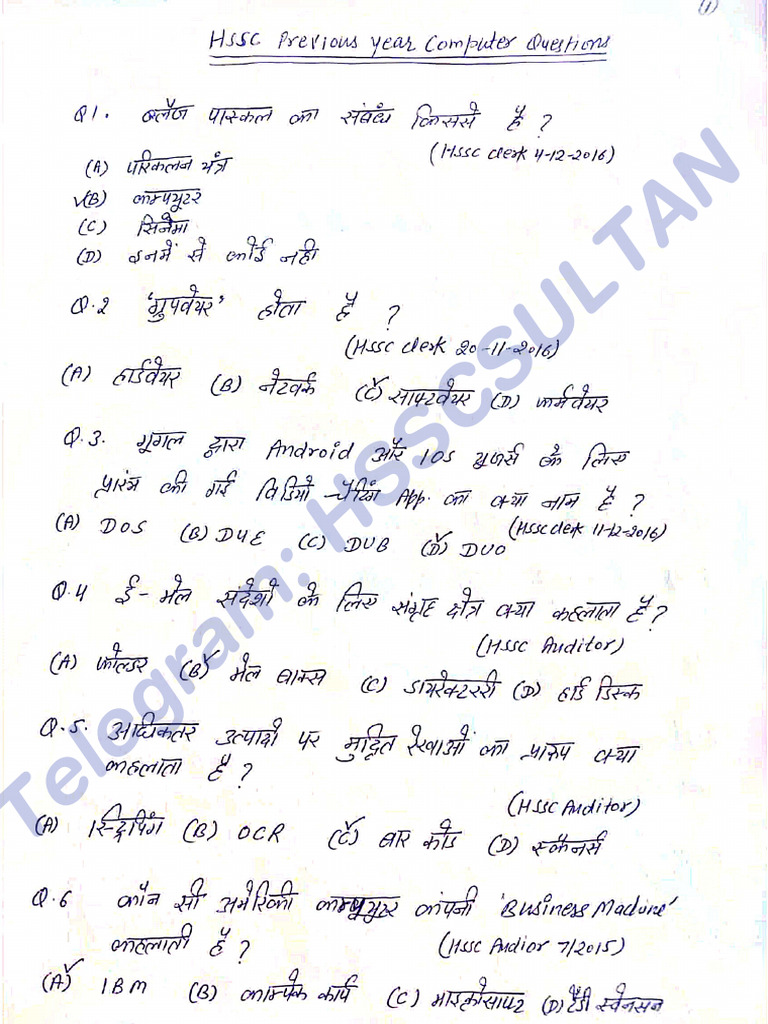 (1)
HSSC Previous year Computer Questions
Q1. ब्लैज पास्कल का संबंध किससे है ?
(HSSC clerk 4-12-2016)
(A) परिकलन यंत्र
✓(B) कम्प्यूटर
(C) सिनेमा
(D) इनमें से कोई नही
Q.2 'ग्रुपवेयर' होता है ?
(HSSC clerk 20-11-2016)
(A) हार्डवेयर (B) नेटवर्क (C)✓ साफ्टवेयर (D) फर्मवेयर
Q.3. गूगल द्वारा Android और IOS यूजर्स के लिए
प्रारंभ की गई विडियो चैटिंग App. का क्या नाम है ?
(HSSC clerk 11-12-2016)
(A) DOS (B) DUE (C) DUB (D)✓ DUO
Q.4 ई-मेल संदेशो के लिए संग्रह क्षेत्र क्या कहलाता है ?
(HSSC Auditor)
(A) फोल्डर (B)✓ मेल बाक्स (C) डायरेक्टररी (D) हार्ड डिस्क
Q.5. अधिकतर उत्पादो पर मुद्रित रेखाओं का प्रारुप क्या
कहलाता है ?
(HSSC Auditor)
(A) स्ट्रिपिंग (B) OCR (C)✓ बार कोड (D) स्कैनर्स
Q.6 कौन सी अमेरिकी कम्प्यूटर कंपनी 'Business Machine'
कहलाती है ?
(HSSC Audior 7/2015)
(A)✓ IBM (B) काम्पेक कार्प (C) माइक्रोसाफ्ट (D) टैंडी स्वेनसन
Telegram: HSSCSULTAN